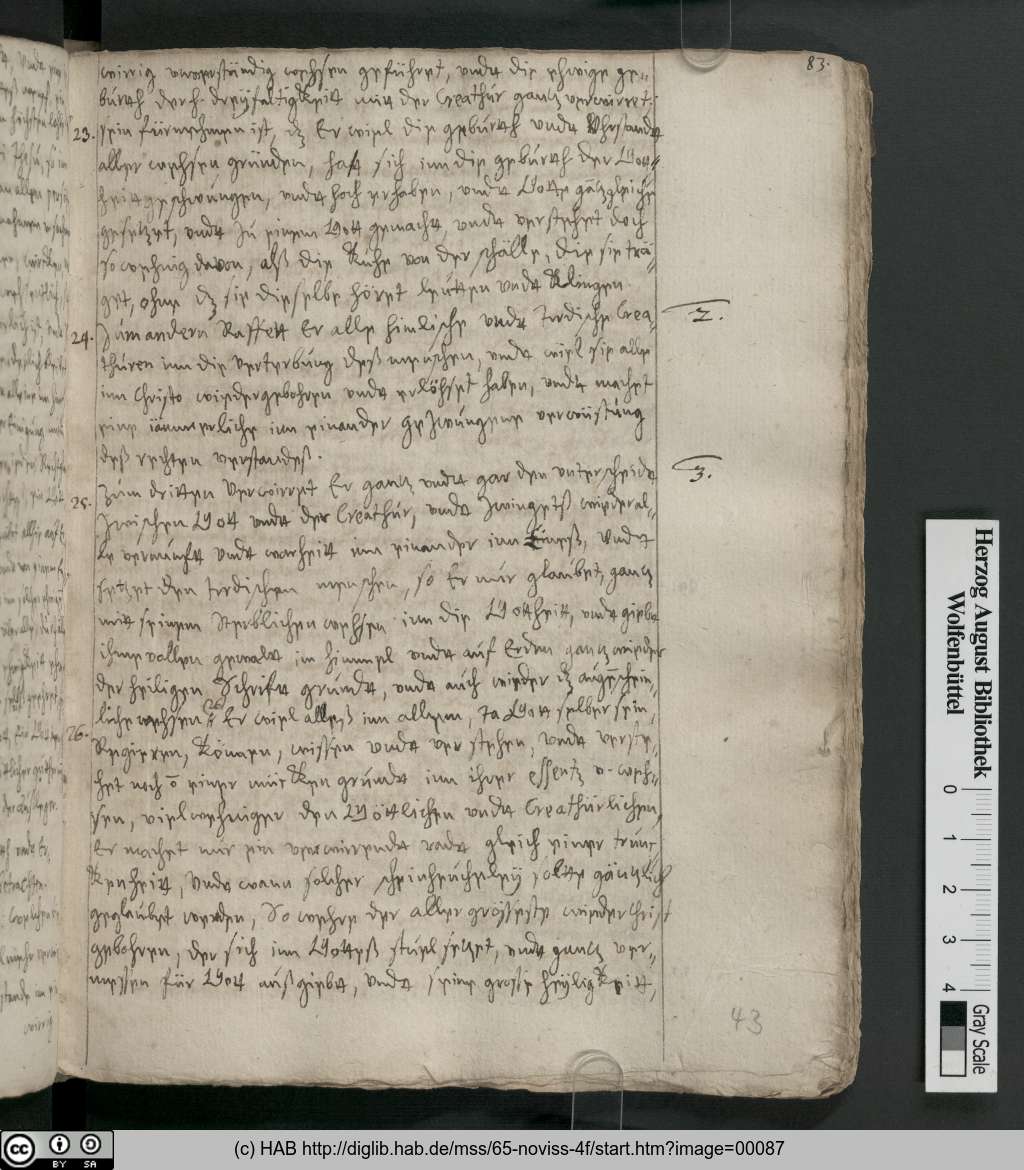 83.
wirrig unverständig wehsen geführet, undt die ehwige ge-
bürth der h. dreÿfaltigkeitt mit der Creathür gantz verwirret.
23. sein fürnehmen ist, dz Er wiel die gebürth undt Uhrstandt
aller wehsen gründen, hatt sich inn die gebürth der Gott-
heitt geschwüngen, undt hoch erhaben, undt Gotte gantz gleich
gesetzet, undt zü einem Gott gemacht, undt verstehet doch
so wehnig davon, alß die Kuhe von der schälle, die sie trä-
get, ohne dz sie dieselbe höret leütten undt Klingen.
24. Züm andern Raffett Er alle himlische undt Irdische Crea-
thüren inn die verterbüng deß menschen, undt wiel sie alle
inn Christo wiedergebohren undt erlöhset haben, undt machet
eine iämmerliche inn einander gezwüngene verwüstüng
deß rechten verstandeß.
2.
25. Züm dritten Verwirret Er gantz undt gar den unterscheidt
zwischen Gott undt der Creathür, undt zwingetß wieder al-
le vernünft undt warheitt inn einander inn Eineß, undt
setzet den Irdischen menschen, so Er nür glaübet, gantz
mitt seinem Sterblichen wehsen inn die Gottheitt, undt giebet
ihme vollen gewalt im himmel undt aüf Erden gantz wieder
der heiligen Schrift gründt, undt auch wieder dz aügeschein-
liche wehsen
3.
26. Er wiel alleß inn allem, Ja Gott selber sein,
Regieren, Können, wissen undt ver stehen, undt verste-
het noch ō einer mücken gründt inn ihrer essentz v. weh-
sen, vielwehniger den Göttlichen undt Creathürlichen,
Er machet nür ein verwirrende undt gleich einer trün-
kenheitt, Undt wann solcher scheinheücheleÿ solte gäntzlich
geglaübet werden, So wehre der aller grösseste wiederChrist
gebohren, der sich inn Gotteß stüel setzet, undt gantz ver-
messen für Gott außgiebet, undt seine grosse heÿligkeitt,
43
Herzog August Bibliothek
Wolfenbüttel
0 1 2 3 4
Gray Scale
cc BY SA
(c) HAB http://diglib.hab.de/mss/65-noviss-4f/start.htm?image=00087